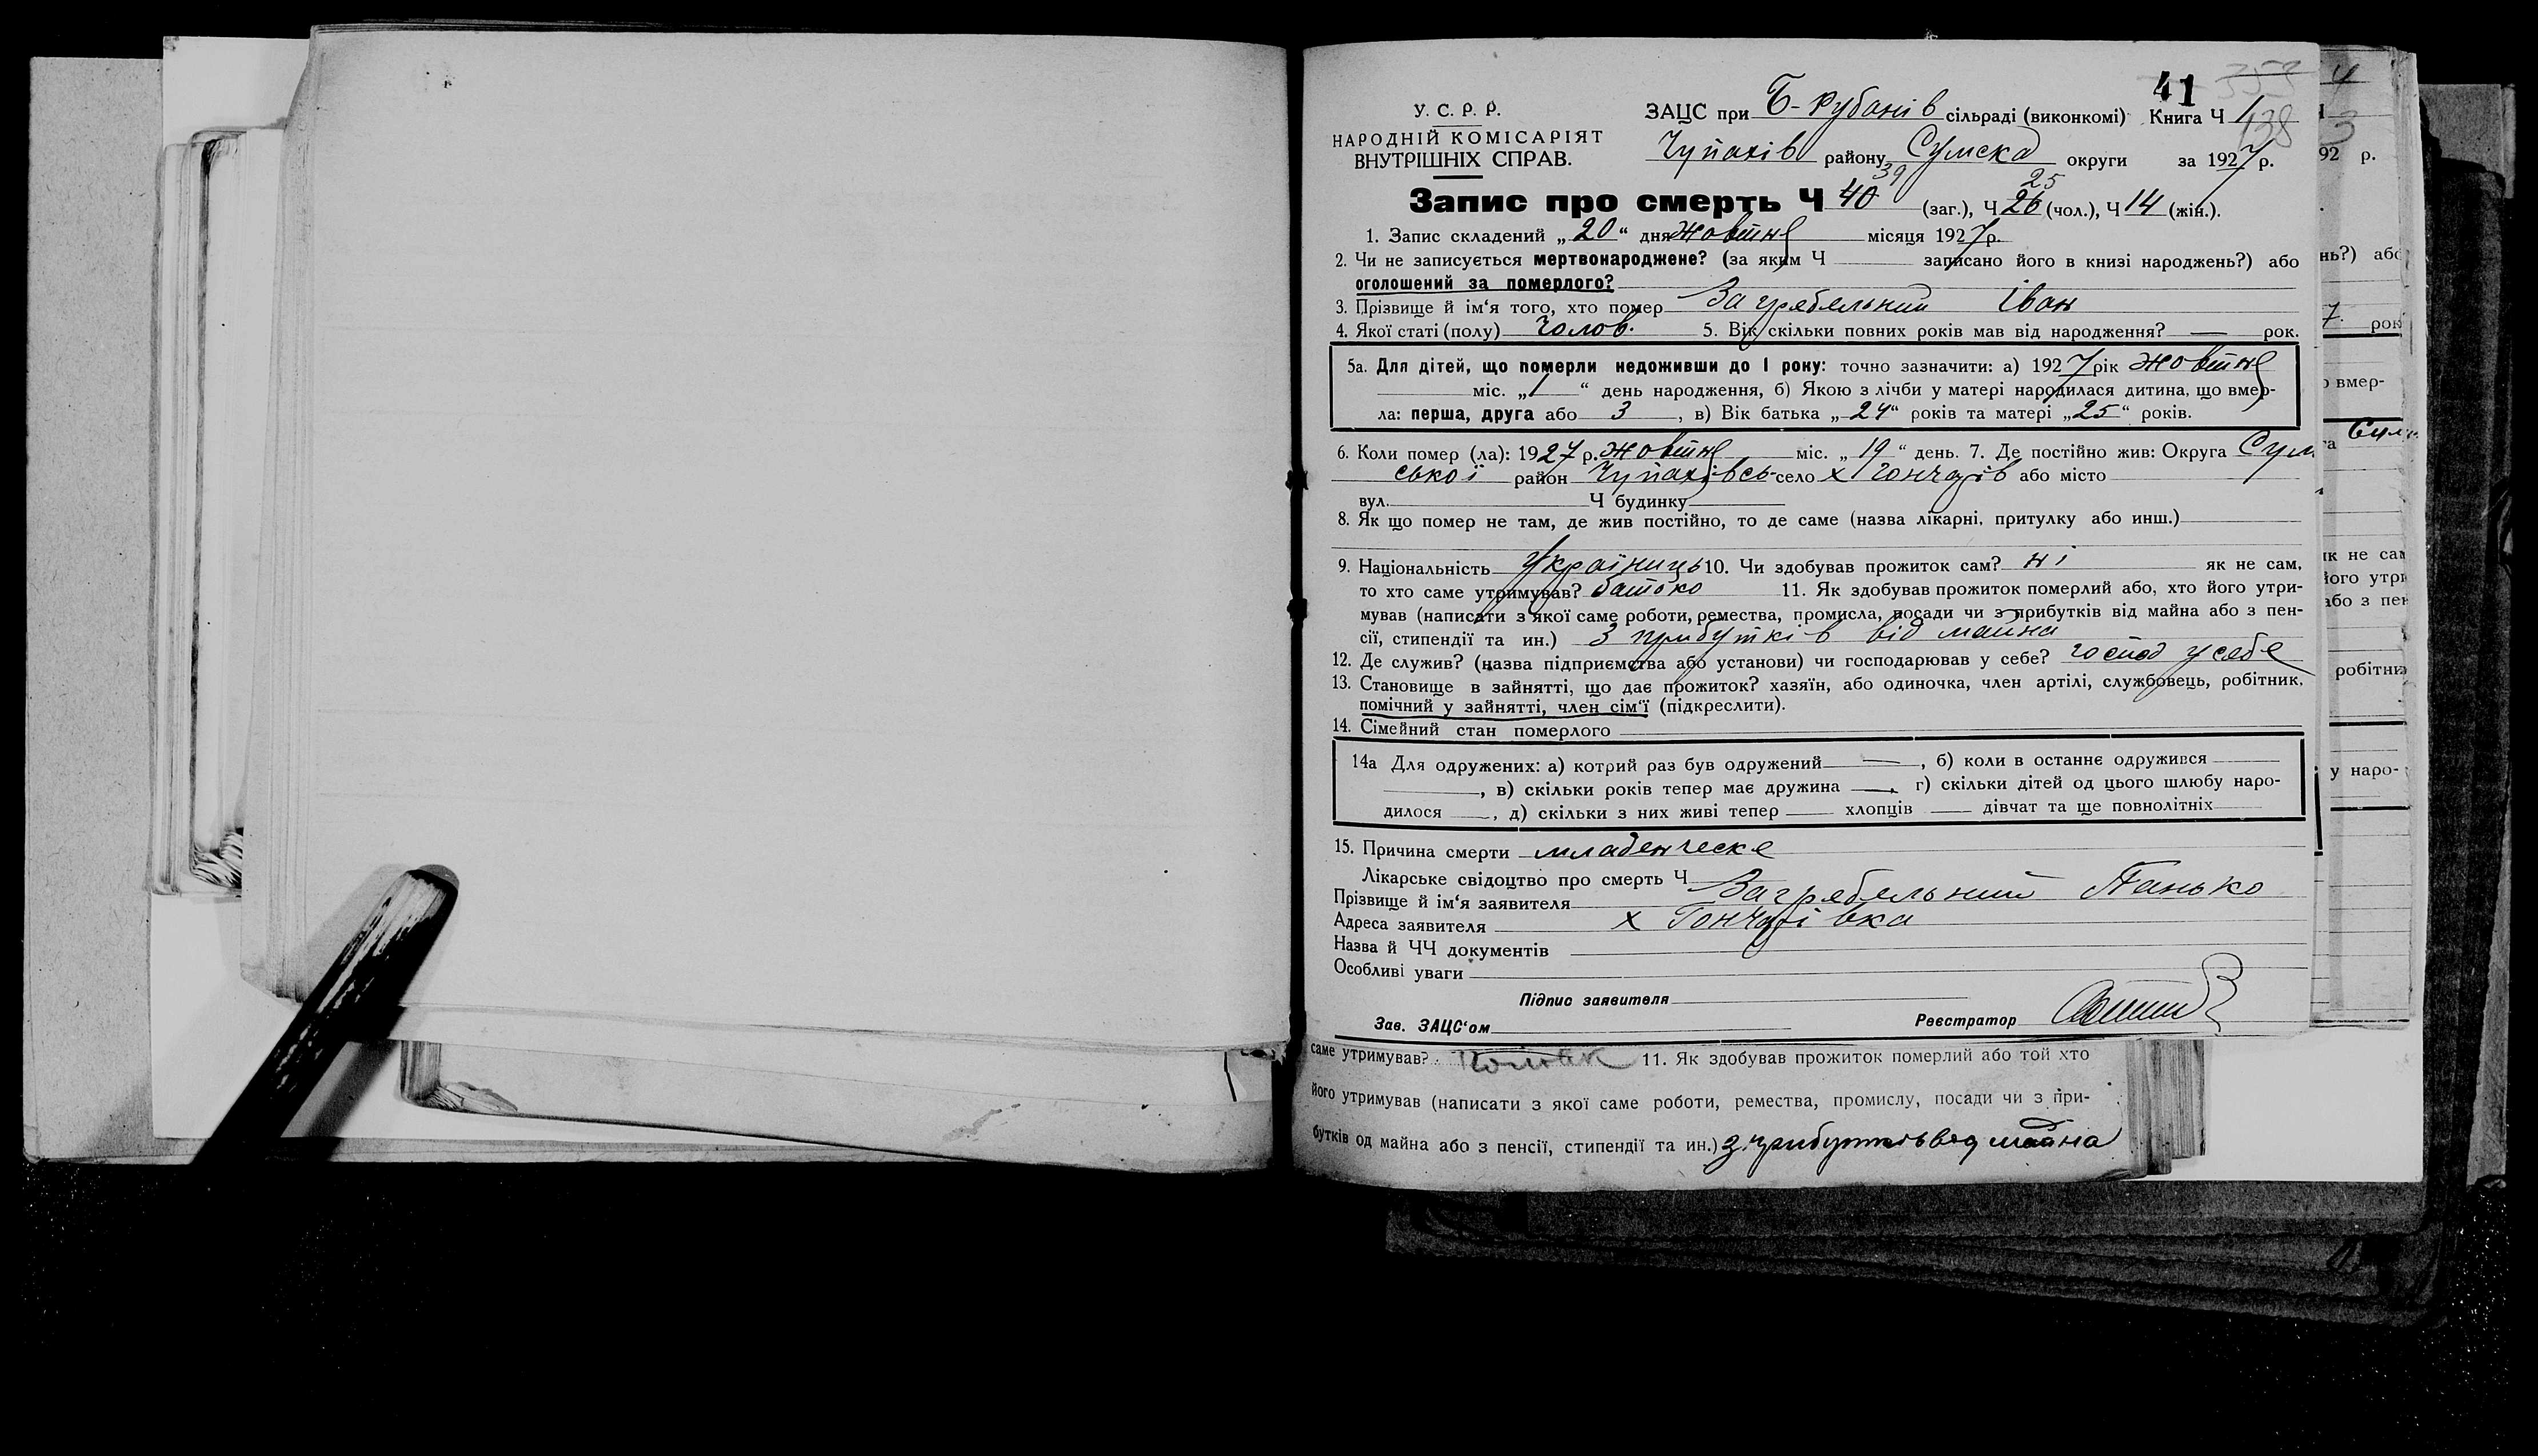 41 353
У. С. Р. Р. ЗАЦС при Б-Рубанів сільраді (виконкомі) Книга Ч 1
138
НАРОДНІЙ КОМІСАРІЯТ
ВНУТРІШНІХ СПРАВ. Чупахів району Сумска округи за 1927 р.
39 25
Запис про смерть Ч 40 (заг.), Ч 26 (чол.), Ч 14 (жін.).
1. Запис складений „ 20 “ дня жовтня місяця 1927 р.
2. Чи не записується мертвонароджене? (за яким Ч записано його в книзі народжень?) або
оголошений за померлого?
3. Прізвище й ім‘я того, хто помер Загребельний Іван
4. Якої статі (полу) чолов. 5. Вік, скільки повних років мав від народження? — рок.
5а. Для дітей, що померли недоживши до І року: точно зазначити: а) 1927 рік жовтня
міс. „ 1 “ день народження, б) Якою з лічби у матері народилася дитина, що вмер-
ла: перша, друга або 3 , в) Вік батька „ 24 “ років та матері „ 25 “ років.
6. Коли помер (ла): 1927 р. жовтня міс. „ 19 “ день. 7. Де постійно жив: Округа Сум
ської район Чупахівсь- село х Гончарів або місто
вул. Ч будинку
8. Як що помер не там, де жив постійно, то де саме (назва лікарні, притулку або инш.)
9. Національність Українець 10. Чи здобував прожиток сам? ні як не сам,
то хто саме утримував? батько 11. Як здобував прожиток померлий або, хто його утри-
мував (написати з якої саме роботи, ремества, промисла, посади чи з прибутків від майна або з пен-
сії, стипендії та ин.) З прибутків від майна
12. Де служив? (назва підприємства або установи) чи господарював у себе? господ у себе
13. Становище в зайнятті, що дає прожиток? хазяїн, або одиночка, член артілі, службовець, робітник,
помічний у зайнятті, член сім‘ї (підкреслити).
14. Сімейний стан померлого
14а Для одружених: а) котрий раз був одружений — , б) коли в останнє одружився
, в) скільки років тепер має дружина — , г) скільки дітей од цього шлюбу наро-
дилося , д) скільки з них живі тепер хлопців дівчат та ще повнолітніх
15. Причина смерти младенческе
Лікарське свідоцтво про смерть Ч
Прізвище й ім‘я заявителя Загребельний Панько
Адреса заявителя х Гончарівка
Назва й ЧЧ документів
Особливі уваги
Підпис заявителя
Зав. ЗАЦС‘ом Реєстратор
саме утримував? 11. Як здобував прожиток померлий або той хто
його утримував (написати з якої саме роботи, ремества, промислу, посади чи з при-
бутків од майна або з пенсії, стипендії та ин.) з прибутків від майна
3
92 р.
нь?) або
7. рок
о вмер-
га Сум
як не сам
його утри
або з пен
робітник
у наро-